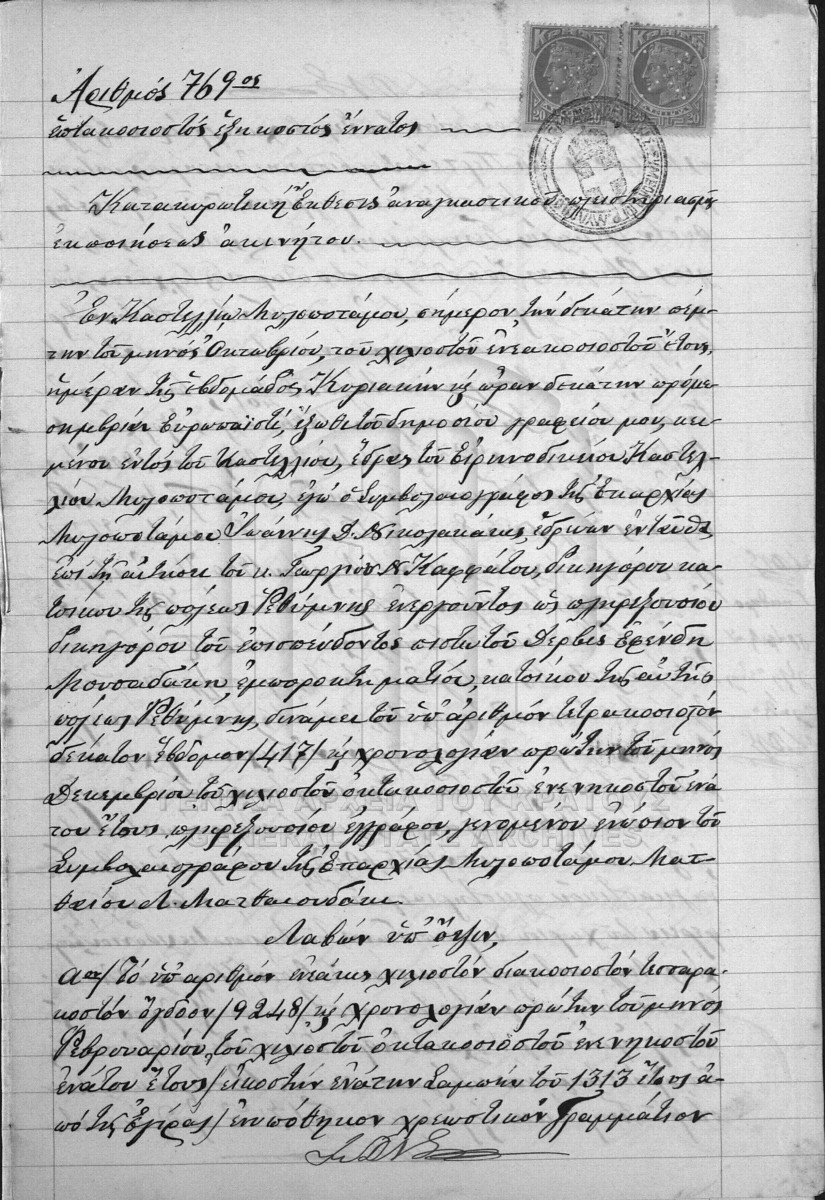 Ἀριθμός 769ος
ἑπτακοσιοστός ἑξηκοστός ἔννατος
Κατακυρωτική Ἔκθεσις ἀναγκαστικοῦ πλειστηριασμοῦ
ἐκποιήσεως ἀκινήτου.
Ἐν Καστελλίῳ Μυλοποτάμου, σήμερον τήν δεκάτην πέμ-
την τοῦ μηνός Ὀκτωβρίου, τοῦ χιλιοστοῦ ἐνεακοσιοστοῦ ἔτους,
ἡμέραν τῆς ἑβδομάδος Κυριακήν καί ὥραν δεκάτην πρό με-
σημβρίαν Εὐρωπαϊστί, ἔξωθι τοῦ δημοσίου γραφείου μου, κει-
μένου ἐντός τοῦ Καστελλίου, ἕδρας τοῦ Εἰρηνοδικείου Καστελ-
λίου Μυλοποτάμου, ἐγώ ὁ Συμβολαιογράφος τῆς Ἐπαρχίας
Μυλοποτάμου Ἰωάννης Δ. Νικολακάκις, ἑδρεύων ἐνταῦθα,
ἐπί τῇ αἰτήσει τοῦ κ. Γεωργίου Ν Καφφάτου, δικηγόρου κα-
τοίκου τῆς πόλεως Ῥεθύμνης ἐνεργοῦντος ὡς πληρεξουσίου
δικηγόρου τοῦ ἐπισπεύδοντος πιστωτοῦ Δερβίς Ἐφένδη
Μουσαδάκη, ἐμποροκτηματίου, κατοίκου τῆς αὐτῆς
πόλεως Ῥεθύμνης, δυνάμει τοῦ ὑπ' ἀριθμόν τετρακοσιοστόν
δέκατον ἕβδομον /417/ καί χρονολογίαν πρώτην τοῦ μηνός
Δεκεμβρίου τοῦ χιλιοστοῦ ὀκτακοσιοστοῦ ἐνενηκοστοῦ ἐνά-
του ἔτους πληρεξουσίου ἐγγράφου, γενομένου ἐνώπιον τοῦ
Συμβολαιογράφου τῆς Ἐπαρχίας Μυλοποτάμου Ματ-
θαίου Λ. Ματθαιουδάκι.
Λαβών ὑπ' ὄψιν,
αον/ τό ὑπ' ἀριθμόν ἐνάκις χιλιοστόν διακοσιοστόν τεσσαρα-
κοστόν ὄγδοον /9248/ καί χρονολογίαν πρώτην τοῦ μηνός
Φεβρουαρίου, τοῦ χιλιοστοῦ ὀκτακοσιοστοῦ ἐνενηκοστοῦ
ἐνάτου ἔτους /εἰκοστήν ἐνάτην Σαμπάν τοῦ 1313 ἔτους ἀ-
πό τῆς Ἐγίρας/ ἐνυπόθηκον χρεωστικόν Γραμμάτιον
ΓΕΝΙΚΑ ΑΡΧΕΙΑ ΤΟΥ ΚΡΑΤΟΥΣ
GENERAL STATE ARCHIVES